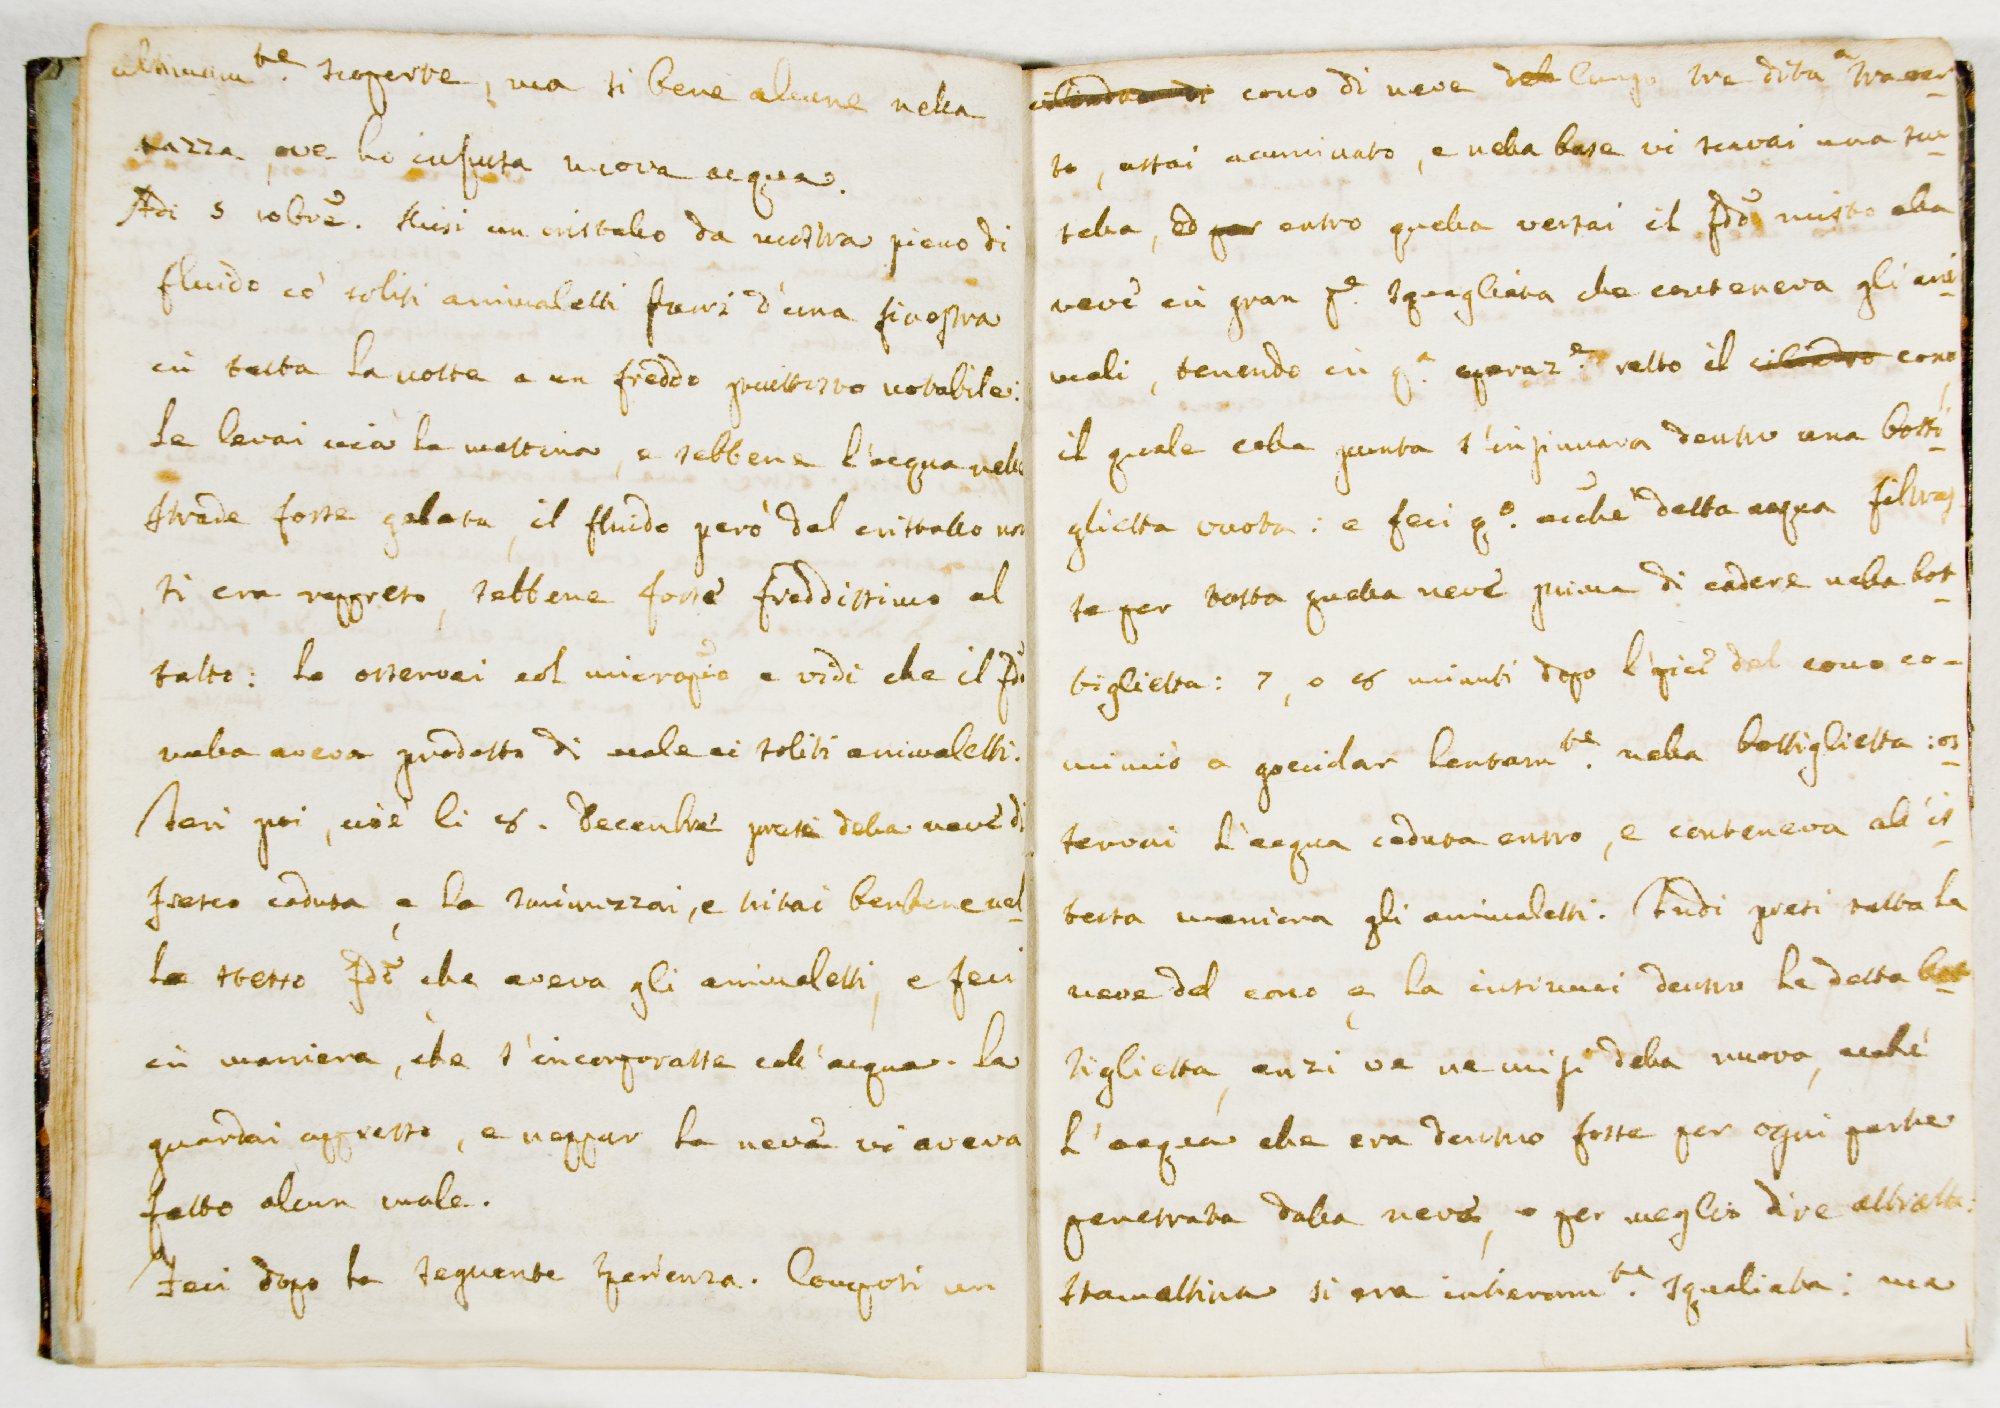 ultimam.te scoperte, ma si bene alcune nella
tazza ove ho infusa nuova acqua.
Adi 5 xbre. Misi un cristallo da mostra pieno di
fluido co' soliti animaletti fuori d'una finestra
in tutta la notte a un freddo piuttosto notabile:
Le levai via la mattina, e sebbene l'acqua nelle
strade fosse gelata, il fluido però del cristallo non
si era rappreso, sebbene fosse freddissimo al
tatto: lo osservai col microspio e vidi che il fdo
nulla aveva prodotto di male ai soliti animaletti.
Ieri poi, cioè li 8. Decembre presi della neve di
fresco caduta e la sminuzzai, e tritai benbene nel-
lo stesso fdo che aveva gli animaletti, e feci
in maniera, che s'incorporasse coll'acqua. La
guardai appresso, e neppur la neve vi aveva
fatto alcun male.
Feci dopo la seguente sperienza. Composi un
cilindro di cono di neve del lungo tre dita a traver-
so, assai acuminato, e nella base vi scavai una sco-
tella, ed per entro quella versai il fdo misto alla
neve in gran pe. squagliata che conteneva gli ani-
mali, tenendo in qa. operaz.e retto il cilindro cono,
il quale colla punta s'insinuava dentro una botti-
glietta vuota: e feci qo. acchè detta acqua filtras-
se per tutta quella neve prima di cadere nella bot-
tiglietta: 7, o 8 minuti dopo l'apice del cono co-
minciò a gocciolar lentam.te nella bottiglietta: os-
servai l'acqua caduta entro, e conteneva all'is-
tessa maniera gli animaletti. Indi presi tutta la
neve del cono, e la insinuai dentro la detta bot-
tiglietta, anzi ve ne misi della nuova, acchè
l'acqua che era dentro fosse per ogni parte
penetrata dalla neve, o per meglio dire attratta:
Stamattina si era intieram.te squaliata: ma